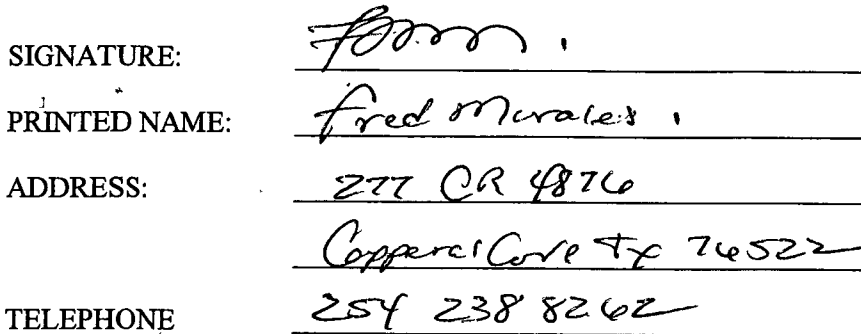 SIGNATURE:
PRINTED NAME: Fred Morales
ADDRESS: 277 CR 4876
Copperas Cove Tx 76522
TELEPHONE 254 238 8262